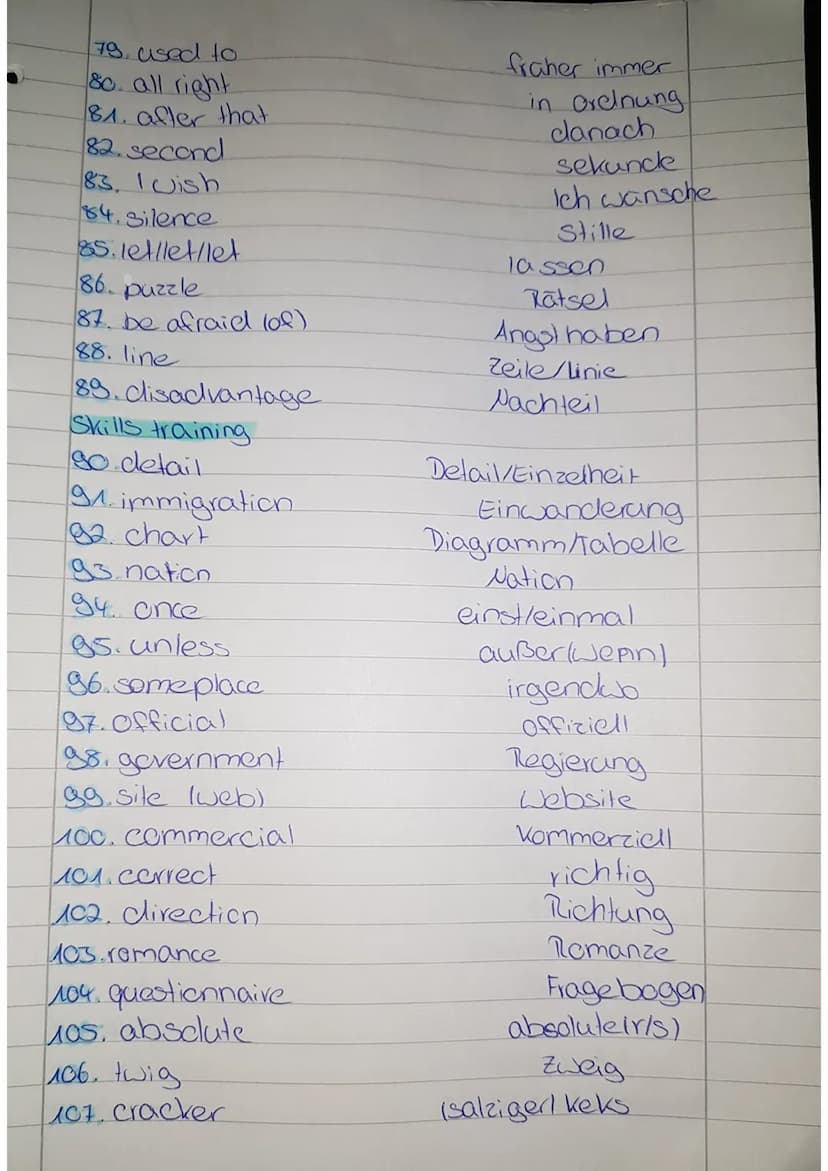 79. used to früher immer
80. all right in Ordnung
81. after that danach
82. second sekunde
83. I wish Ich wünsche
84. silence Stille
85. let/let/let lassen
86. puzzle Rätsel
87. be afraid (of) Angst haben
88. line Zeile/Linie
89. disadvantage Nachteil
Skills training
90. detail Detail/Einzelheit
91. immigration Einwanderung
92. chart Diagramm/Tabelle
93. nation Nation
94. once einst/einmal
95. unless außer(wenn)
96. someplace irgendwo
97. official offiziell
98. government Regierung
99. site (web) Website
100. commercial kommerziell
101. correct richtig
102. direction Richtung
103. romance Romanze
104. questionnaire Fragebogen
105. absolute absolute(r/s)
106. twig Zweig
107. cracker (salziger) Keks